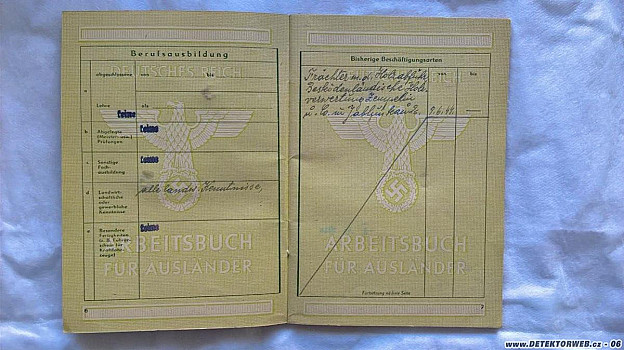 Berufsausbildung
DEUTSCHES REICH
a
abgeschlossene
von
bis
Lehre
als
Keine
b
Abgelegte
(Meister- usw.)
Prüfungen
Keine
c
Sonstige
Fach-
ausbildung
Keine
d
Landwirt-
schaftliche
oder
gewerbliche
Kenntnisse
alle landw. Kenntnisse,
e
Besondere
Fertigkeiten
(z. B. Führer-
schein für
Kraftfahr-
zeuge)
Keine
ARBEITSBUCH
FÜR AUSLÄNDER
6
Bisherige Beschäftigungsarten
von
bis
Holzabfuhr
Beskidenländische Holz-
verwertung
ARBEITSBUCH
FÜR AUSLÄNDER
Fortsetzung nächste Seite
7
www.DETEKTORWEB.cz - 06